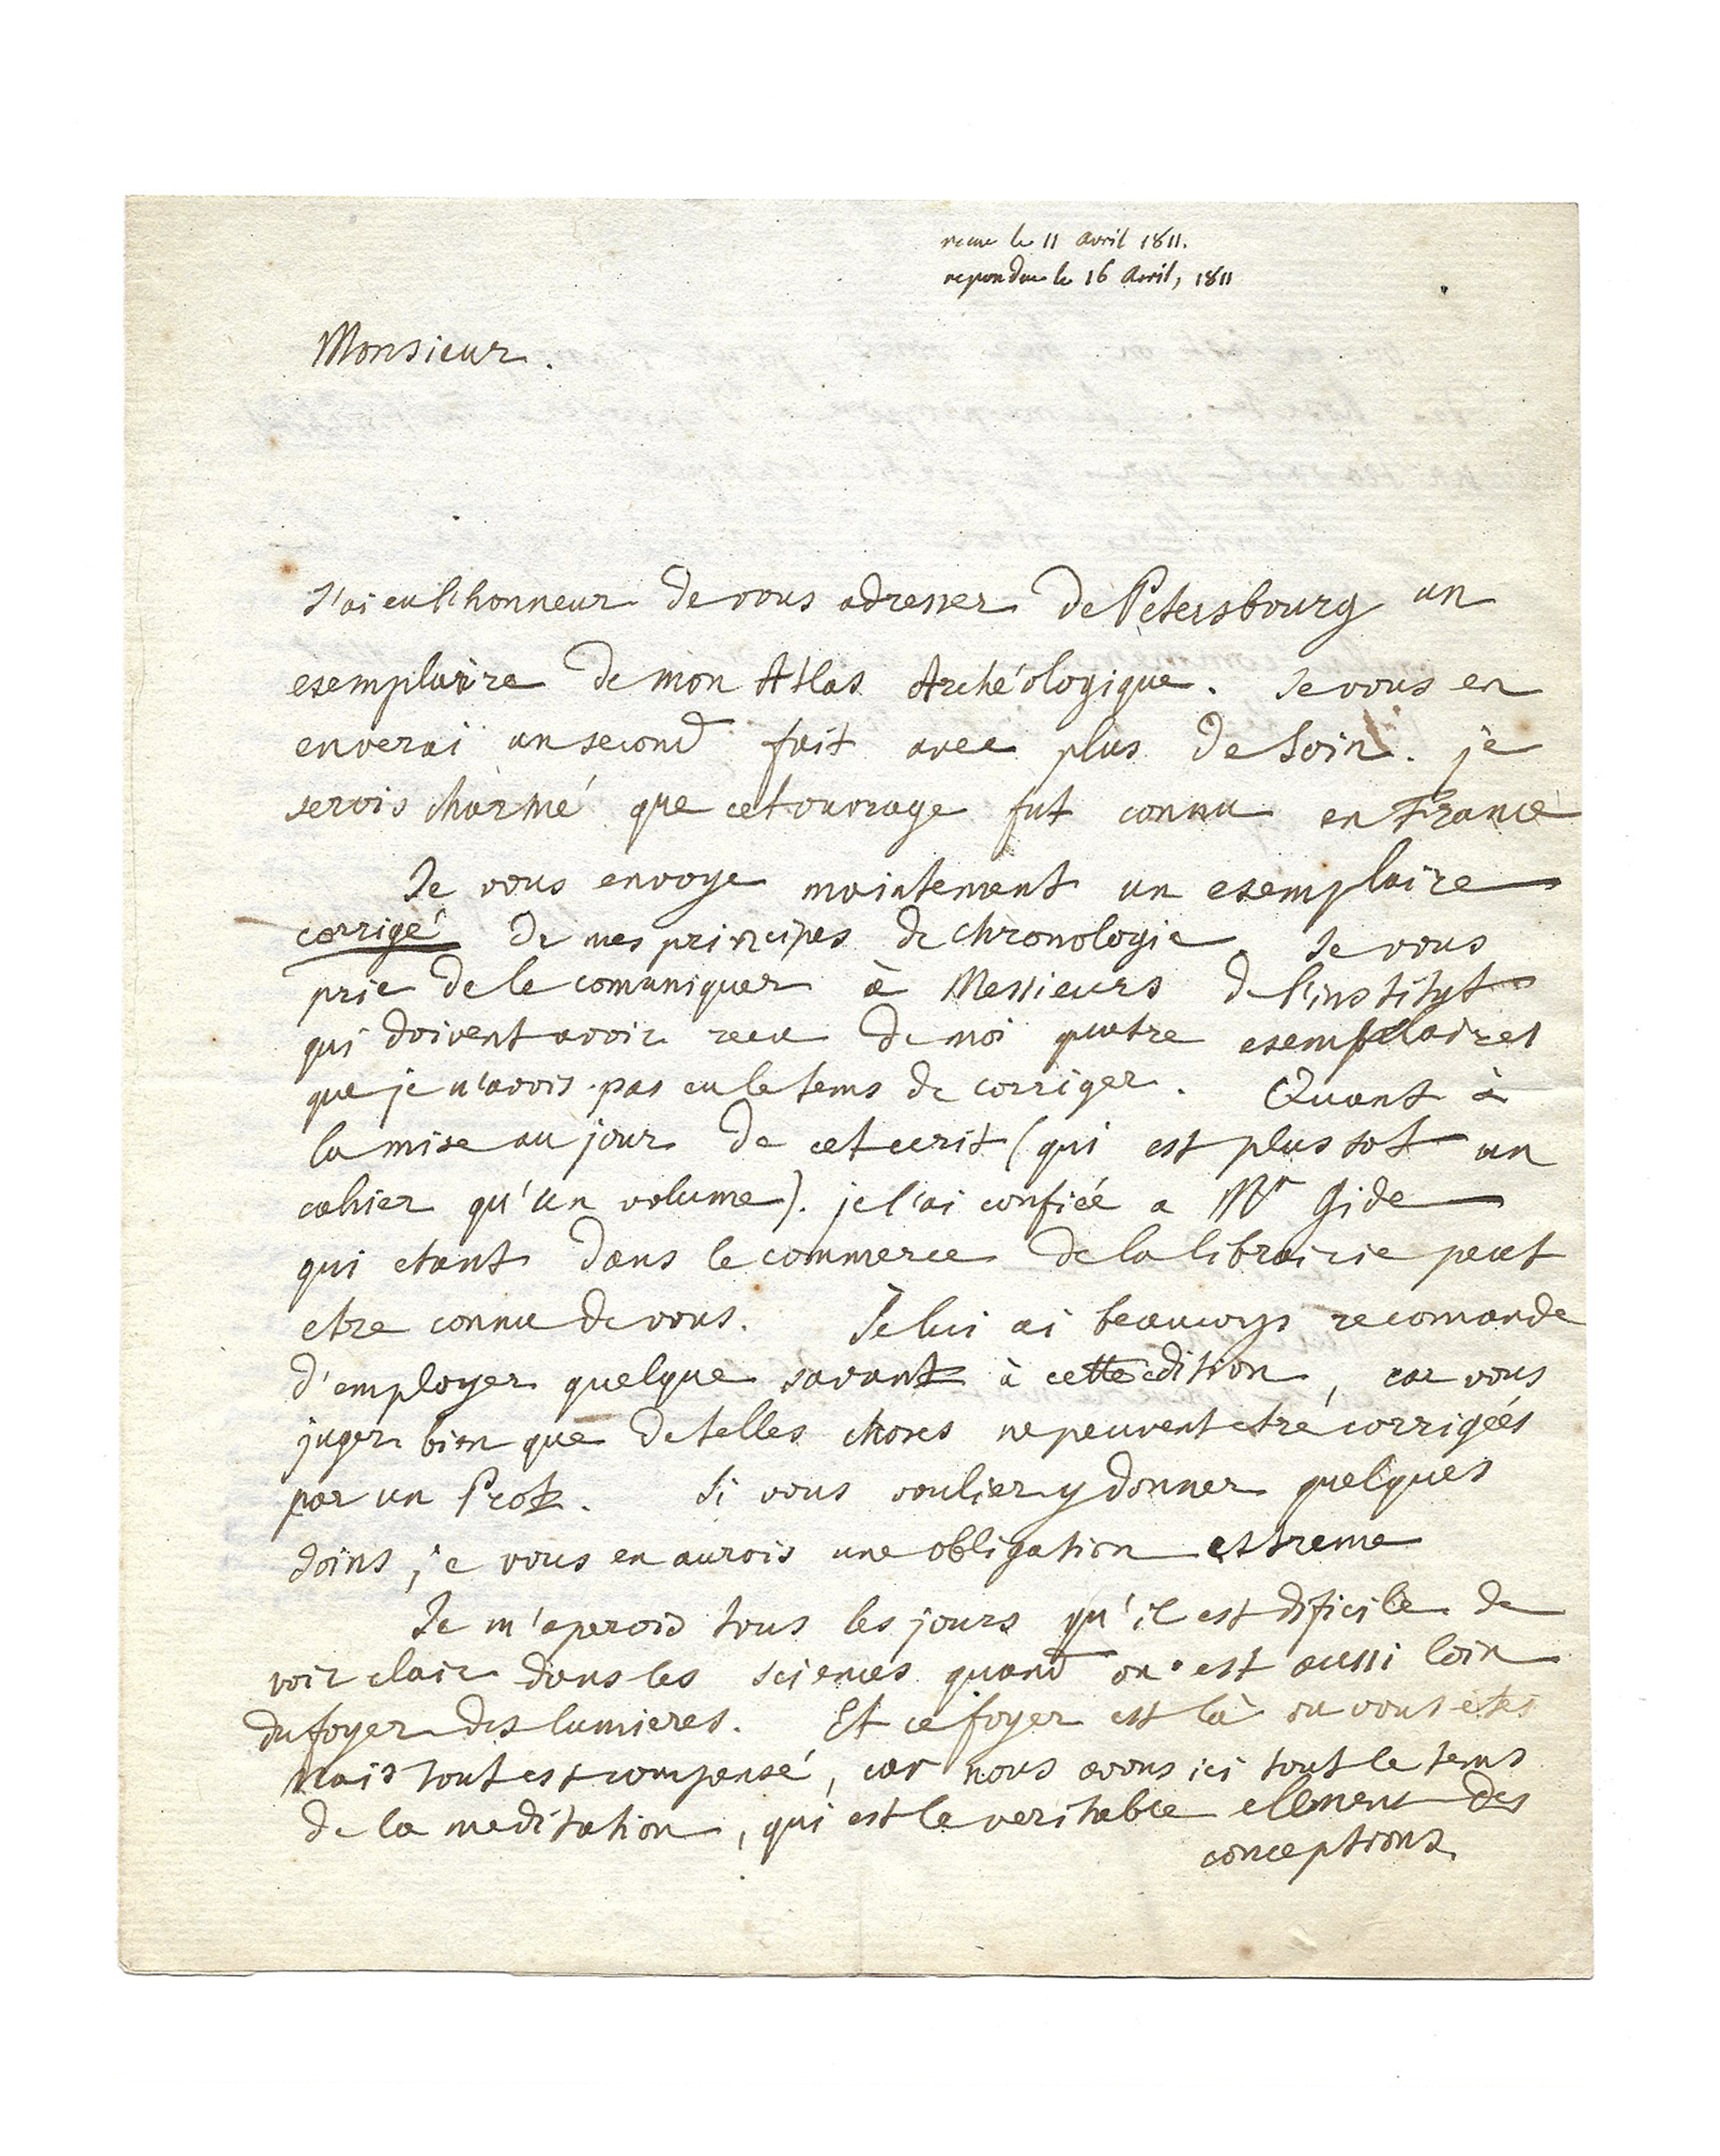 recue le 11 avril 1811.
repondue le 16 Avril, 1811
Monsieur.
J'ai eu l'honneur de vous adresser de Petersbourg un
esemplaire de mon Atlas Archéologique. Je vous en
enverai un second fait avec plus de soin. je
serois charmé que cet ouvrage fut connu en France
Je vous envoye maintenant un esemplaire
corrigé de mes principes de chronologie. Je vous
prie de le comuniquer à Messieurs de l'institut
qui doivent avoir recu de moi quatre esemplaires
que je n'avois pas eu le tems de corriger. Quant à
la mise au jour de cet ecrit (qui est plus tot un
cahier qu'un volume). je l'ai confiéé a Mr Gide
qui etant dans le commerce de la librairie peut
etre connu de vous. Je lui ai beaucoup recomandé
d'employer quelque savant à cette edition, car vous
juger bien que de telles choses ne peuvent etre corrigéés
par un Prote. Si vous voulier y donner quelques
soins, je vous en aurois une obligation estreme
Je m'apercois tous les jours qu'il est dificile de
voir clair dans les sciences quand on est aussi loin
du foyer des lumieres. Et ce foyer est là ou vous etes
Mais tout est compensé, car nous avons ici tout le tems
de la meditation, qui est le veritable element des
conceptions